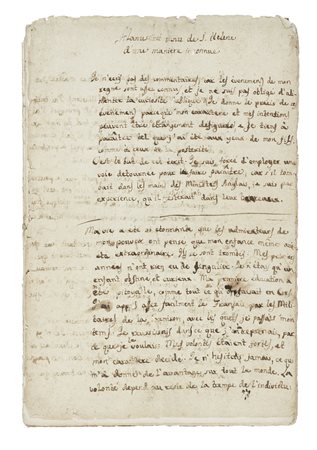 Manuscrit venu de S. Helene
d'une maniere inconnue
Je n'ecris pas des commentaires, car les evenemens de mon
regne sont assez connus, et je ne suis pas obligé d'ali-
menter la curiosité publique. Je donne le precis de ces
évenemens parceque mon caractere et mes intentions
peuvent être étrangement defigurés, et je tiens à
paraitre tel que j'ai été aux yeux de mon fils
comme à ceux de la posterité.
C'est le but de cet ecrit. Je suis forcé d'employer une
voie detournée pour le faire paraitre, car s'il tom-
bait dans les mains des Ministres Anglais, je sais par
experience, qu'il resterait dans leur bureaux.
Ma vie a été si etonnante que les admirateurs de
mon pouvoir ont pensé que mon enfance même avait
été extraordinaire. Ils se sont trompés. Mes premieres
années n'ont rien eu de singulier. Je n'étais qu'un
enfant obstiné et curieux. Ma premiere education a
été pitoyable, comme tout ce qu'on faisait en Corse.
J'ai appris assez facilement le Français par les Mili-
taires de la garnison, avec les quels je passais mon
tems. Je reussissais dans ce que j'entreprenais, par-
ce que je le voulais. Mes volontés étaient fortes, et
mon caractère decidé. Je n'hesitois jamais, ce qui
m'a donné de l'avantage sur tout le monde. La
volonté depend au reste de la trempe de l'individu